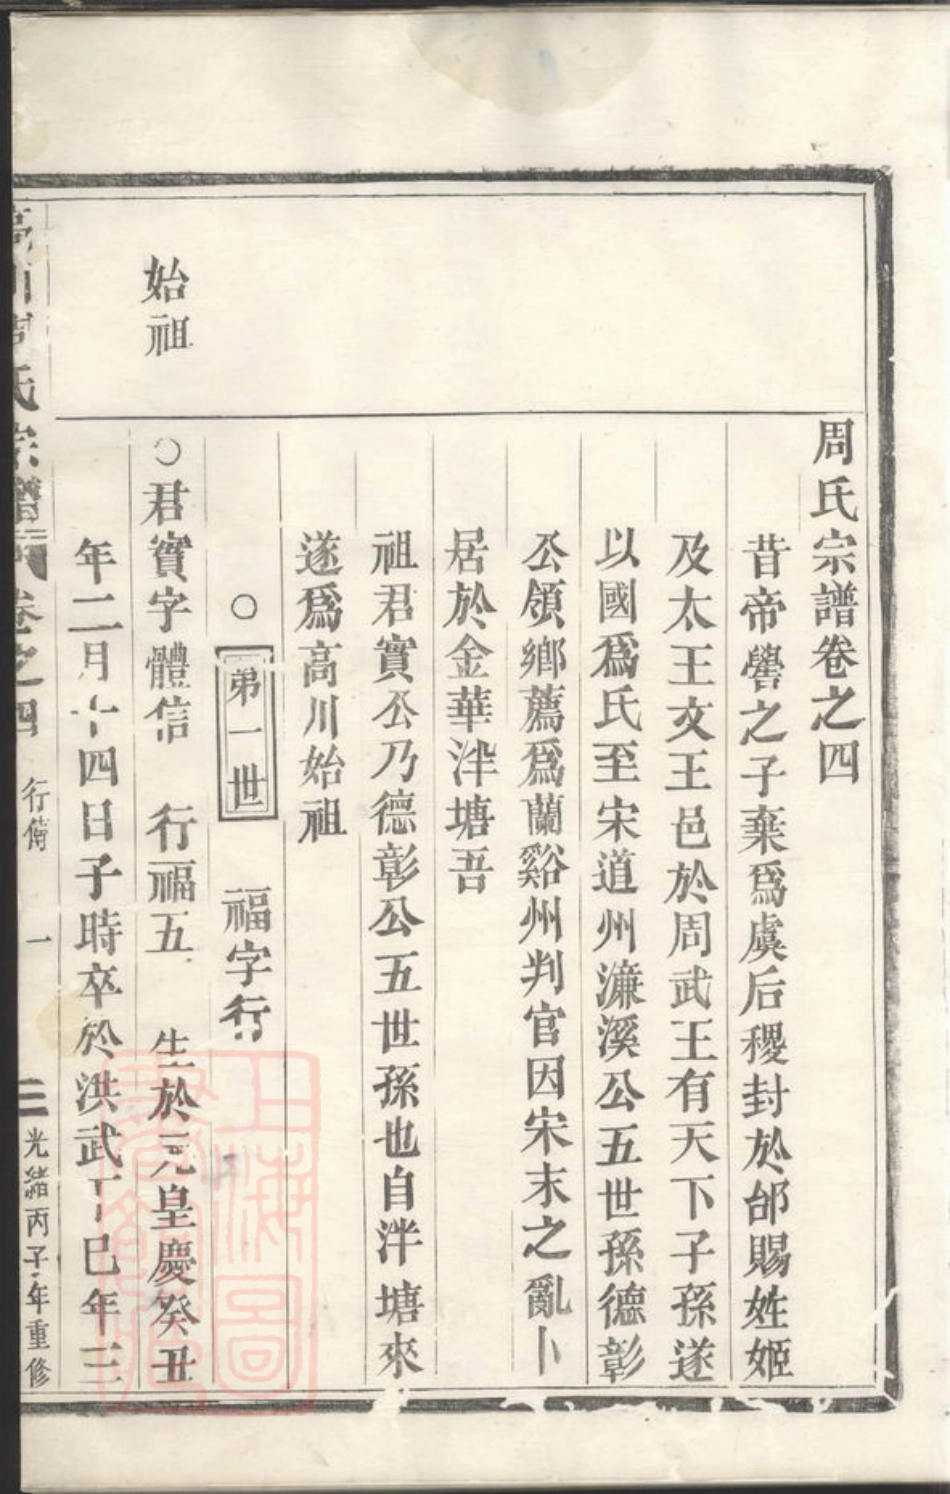 周氏宗譜卷之四
昔帝嚳之子棄爲虞后稷封於邰賜姓姬
及太王文王邑於周武王有天下子孫遂
以國爲氏至宋道州濂溪公五世孫德彰
公領鄉薦爲蘭谿州判官因宋末之亂卜
居於金華泮塘吾
祖君實公乃德彰公五世孫也自泮塘來
遂爲高川始祖
○ 弟一世 福字行
始祖
○君實字體信 行福五 生於元皇慶癸丑
年二月十四日子時卒於洪武丁巳年三
高川周氏宗譜 卷之四 行傳 一 光緒丙子年重修
上海圖書館藏